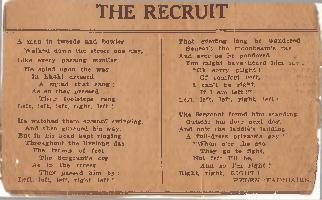 THE RECRUIT
A man in tweeds and bowler
Walked down the street one day,
Like every passing
He spied upon the way
In khaki dressed
A squad that sang;
As on they pressed
Their footsteps rang
Left, left, left, right, left!
He watched them onward swinging,
And then pursued his way,
But in his head kept ringing
Throughout the livelong day
The tramp of feet
The Sergeant's cry
As in the street
They passed him by:
Left, left, left, right left!
That evening long he wandered
Beneath the moonbeam's ray
And ever as he pondered
You might have heard him say:
plight
Of comfort left,
I can't be right
If I am left!"
Left, left, left, right, left!
The Sergeant found him standing
Outside his door next day,
And only the laddie's landing
A full-dress private's pay!
the
They go to fight,
Not left I'll be,
And so I'm right!
Right, right, RIGHT!